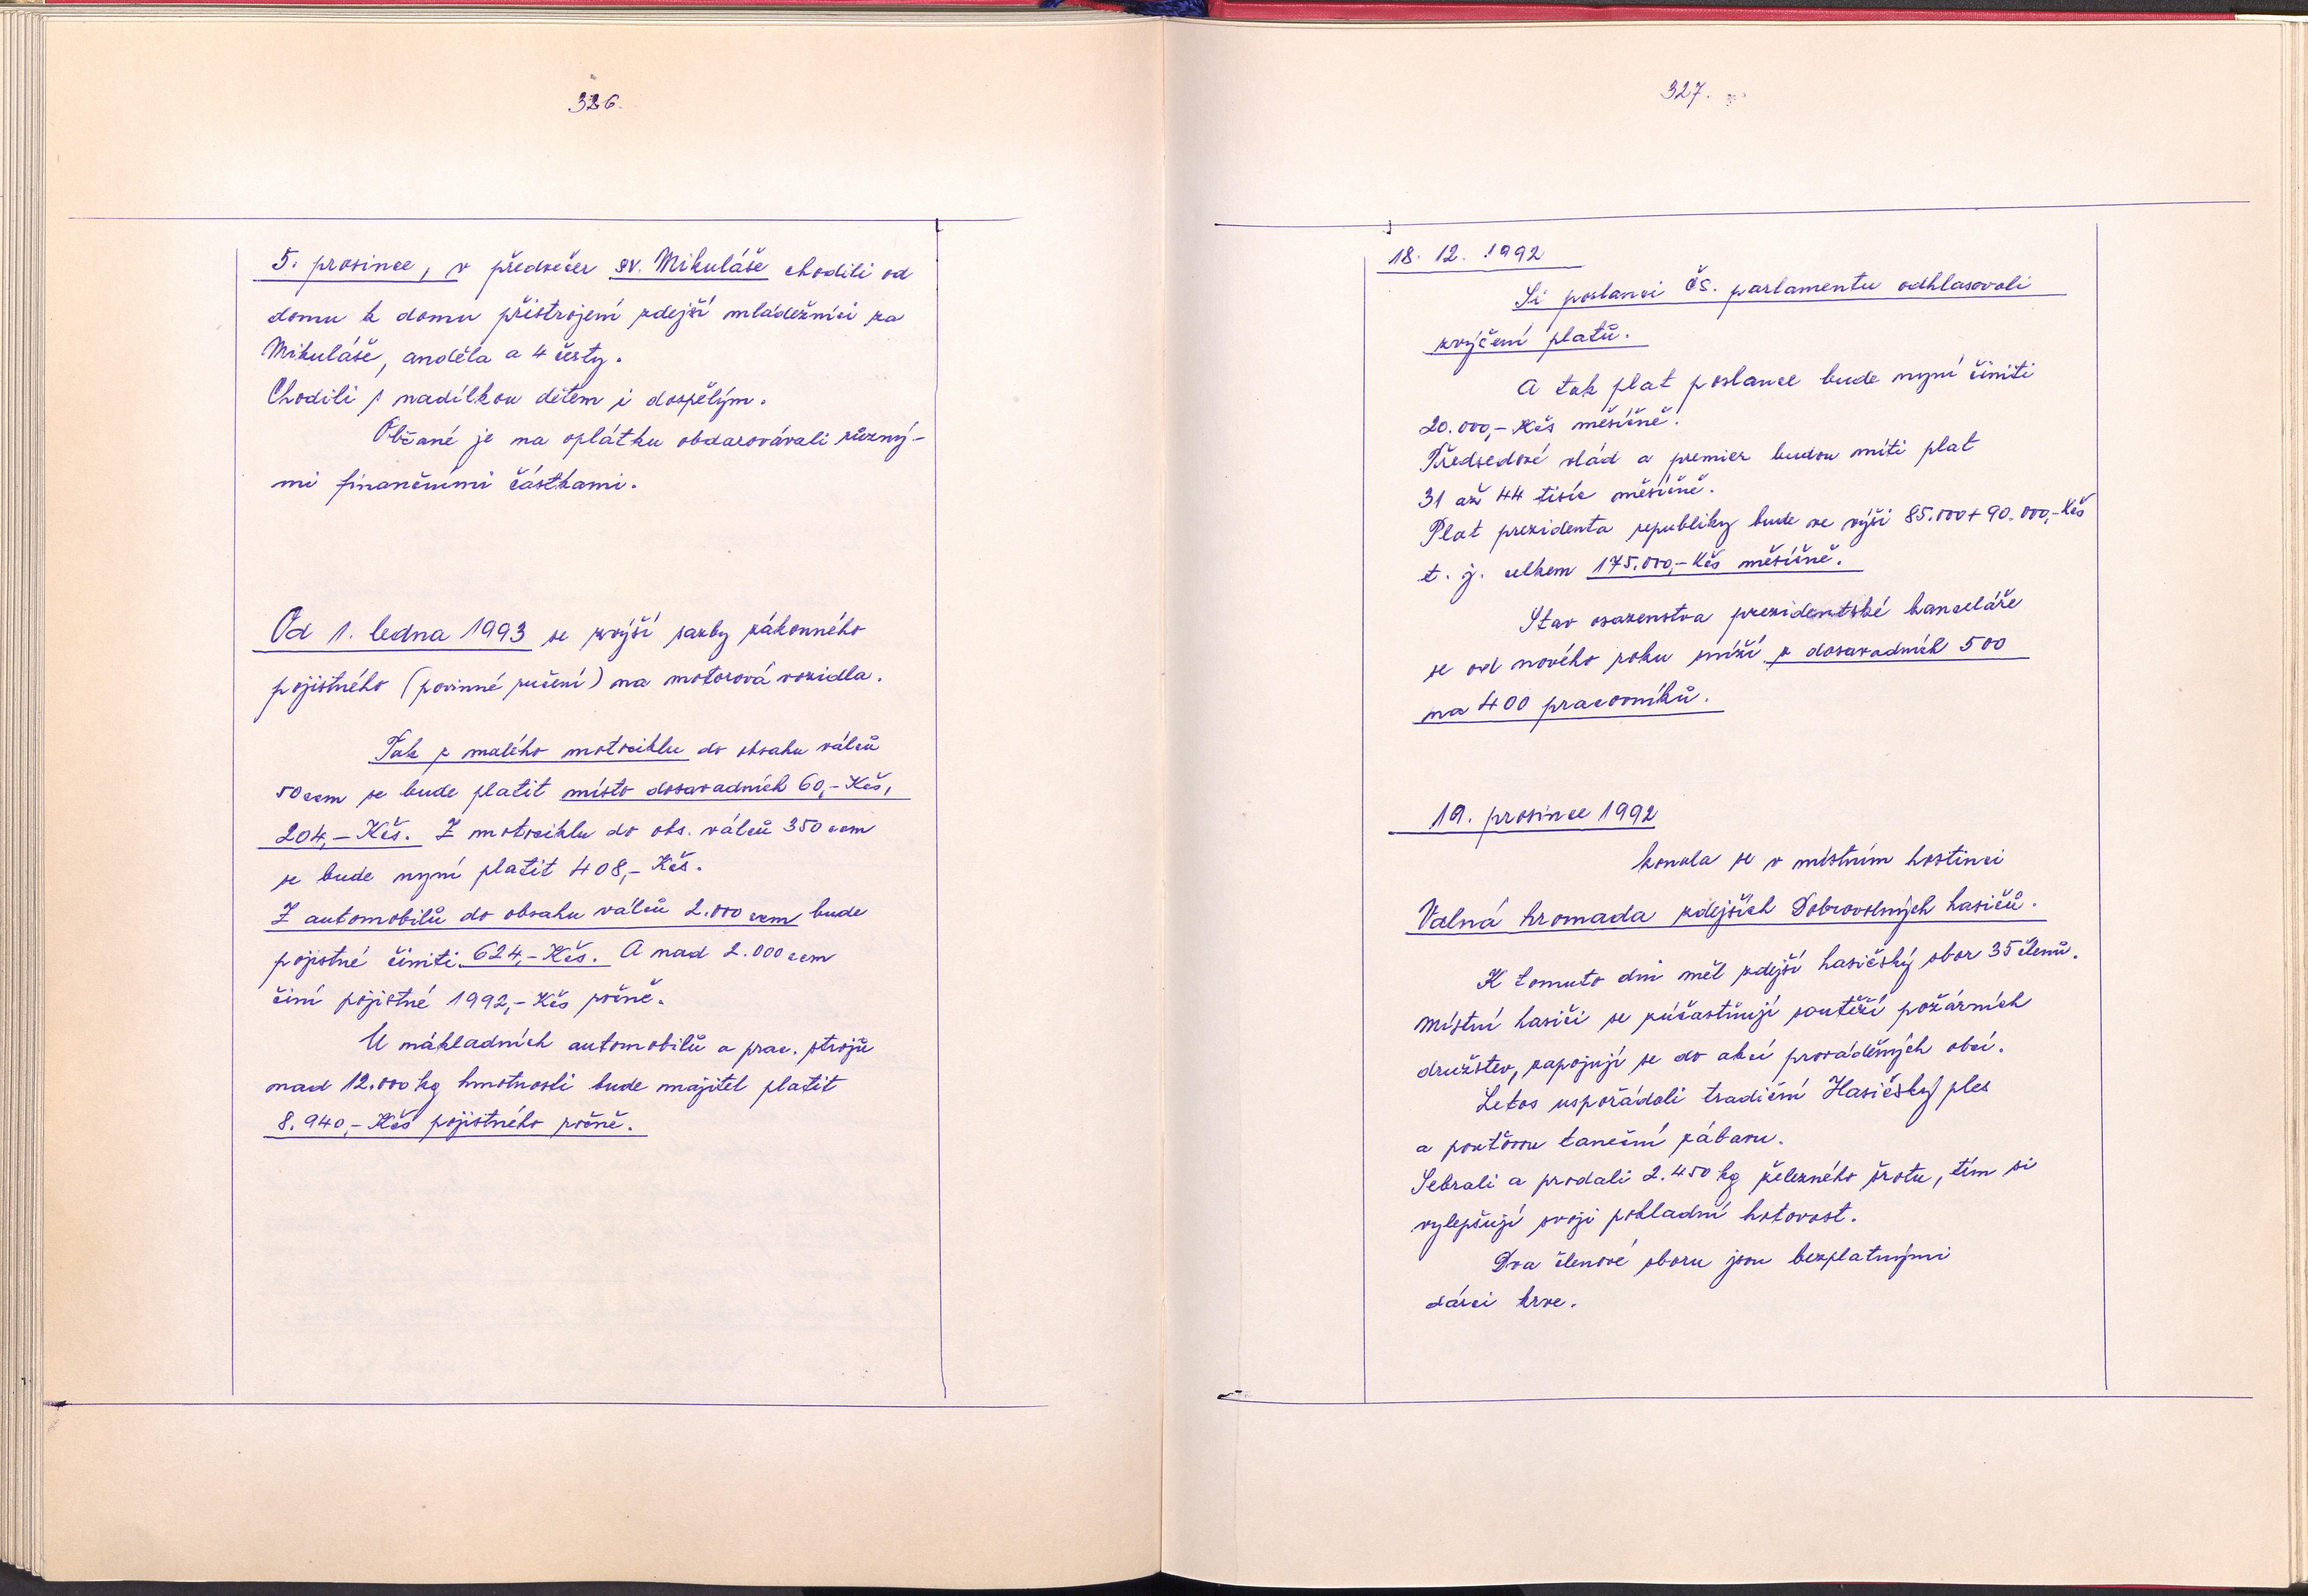 326.
5. prosince, v předvečer sv. Mikuláše chodili od
domu k domu přistrojení zdejší mládežníci za
Mikuláše, anděla a 4 čerty.
Chodili s nadílkou dětem i dospělým.
Občané je na oplátku obdarovávali různý-
mi finančními částkami.
Od 1. ledna 1993 se zvýší sazby zákonného
pojistného (povinné ručení) na motorová vozidla.
Tak z malého motociklu do obsahu válců
50 ccm se bude platit místo dosavadních 60,- Kčs,
204,- Kčs. Z motociklu do obs. válců 350 ccm
se bude nyní platit 408,- Kčs.
Z automobilů do obsahu válců 2.000 ccm bude
pojistné činiti 624,- Kčs. A nad 2.000 ccm
činí pojistné 1992,- Kčs ročně.
U nákladních automobilů a prac. strojů
nad 12.000 kg hmotnosti bude majitel platit
8.940,- Kčs pojistného ročně.
327.
18. 12. 1992
Si poslanci čs. parlamentu odhlasovali
zvýčení platů.
A tak plat poslance bude nyní činiti
20.000,- Kčs měsíčně.
Předsedové vlád a premier budou míti plat
31 až 44 tisíc měsíčně.
Plat prezidenta republiky bude ve výši 85.000 + 90.000,- Kčs
t. j. celkem 175.000,- Kčs měsíčně.
Stav osazenstva prezidentské kanceláře
se od nového roku sníží z dosavadních 500
na 400 pracovníků.
19. prosince 1992
konala se v místním hostinci
Valná hromada zdejších Dobrovolných hasičů.
K tomuto dni měl zdejší hasičský sbor 35 členů.
Místní hasiči se zúčastňují soutěží požárních
družstev, zapojují se do akcí prováděných obcí.
Letos uspořádali tradiční Hasičský ples
a pouťovou taneční zábavu.
Sebrali a prodali 2.450 kg železného šrotu, tím si
vylepšují svoji pokladní hotovost.
Dva členové sboru jsou bezplatnými
dárci krve.